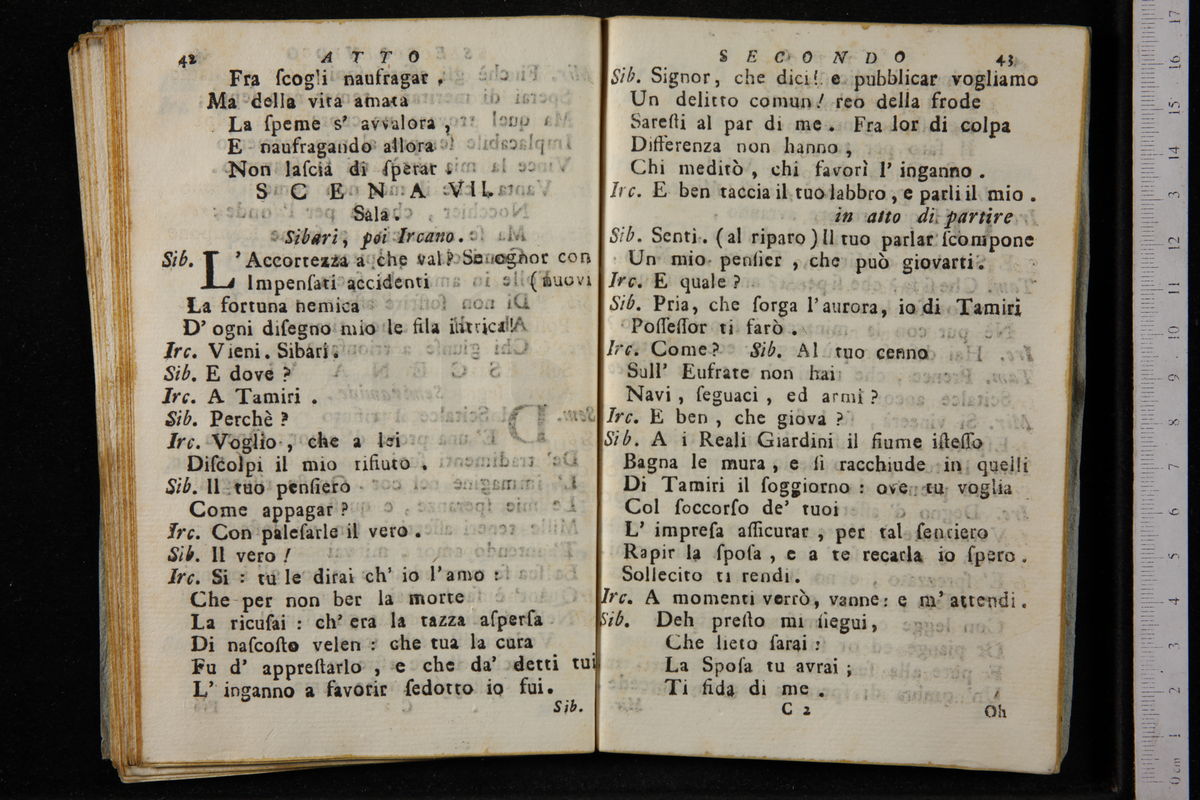 42 ATTO
Fra ſcogli naufragar.
Ma della vita amata
La ſpeme s' avvalora,
E naufragando allora
Non laſcia di ſperar.
SCENA VII.
Sala.
Sibari, poi Ircano.
Sib. L'Accortezza a che val? Se ognor con
Impenſati accidenti (nuovi
La fortuna nemica
D' ogni diſegno mio le fila intrica!
Irc. Vieni. Sibari.
Sib. E dove?
Irc. A Tamiri.
Sib. Perchè?
Irc. Voglio, che a lei
Diſcolpi il mio rifiuto.
Sib. Il tuo penſiero
Come appagar?
Irc. Con paleſarle il vero.
Sib. Il vero!
Irc. Si: tu le dirai ch' io l'amo:
Che per non ber la morte
La ricuſai: ch' era la tazza aſperſa
Di naſcoſto velen: che tua la cura
Fu d' appreſtarlo, e che da' detti tui
L' inganno a favorir ſedotto io fui.
Sib.
SECONDO 43
Sib. Signor, che dici! e pubblicar vogliamo
Un delitto comun! reo della frode
Sareſti al par di me. Fra lor di colpa
Differenza non hanno,
Chi meditò, chi favorì l' inganno.
Irc. E ben taccia il tuo labbro, e parli il mio.
in atto di partire
Sib. Senti. (al riparo) Il tuo parlar ſcompone
Un mio penſier, che può giovarti.
Irc. E quale?
Sib. Pria, che ſorga l'aurora, io di Tamiri
Poſſeſſor ti farò.
Irc. Come? Sib. Al tuo cenno
Sull' Eufrate non hai
Navi, ſeguaci, ed armi?
Irc. E ben, che giova?
Sib. A i Reali Giardini il fiume iſteſſo
Bagna le mura, e ſi racchiude in quelli
Di Tamiri il ſoggiorno: ove tu voglia
Col ſoccorſo de' tuoi
L' impreſa aſſicurar, per tal ſentiero
Rapir la ſpoſa, e a te recarla io ſpero.
Sollecito ti rendi.
Irc. A momenti verrò, vanne: e m' attendi.
Sib. Deh preſto mi ſiegui,
Che lieto ſarai:
La Spoſa tu avrai;
Ti fida di me.
C 2 Oh
17
16
15
14
13
12
11
10
9
8
7
6
5
4
3
2
1
0 cm